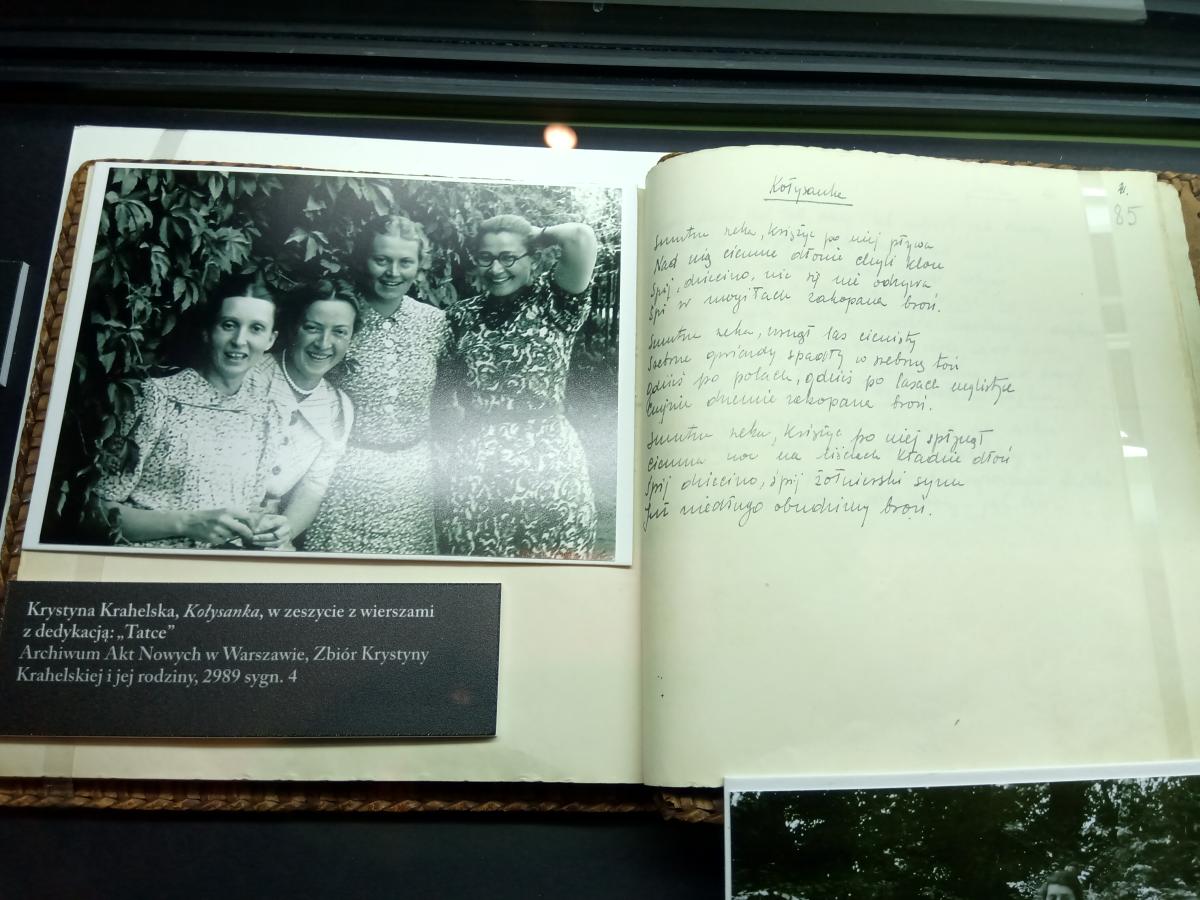 Krystyna Krahelska, Kołysanka, w zeszycie z wierszami
z dedykacją: „Tatce”
Archiwum Akt Nowych w Warszawie, Zbiór Krystyny
Krahelskiej i jej rodziny, 2989 sygn. 4
Kołysanka
85
Smutna rzeka, księżyc po niej pływa
Nad nią ciemne dłonie chyli klon
Śpij, dziecino, nic się nie odzywa
Śpi w mogiłach zakopana broń.
Smutna rzeka, usnął las cienisty
Srebrne gwiazdy spadły w srebrną toń
Gdzieś po polach, gdzieś po lasach mglistych
Czujnie drzemie zakopana broń.
Smutna rzeka, księżyc po niej spłynął
Ciemna noc na liściach kładzie dłoń
Śpij dziecino, śpij żołnierski synu
Już niedługo obudzimy broń.